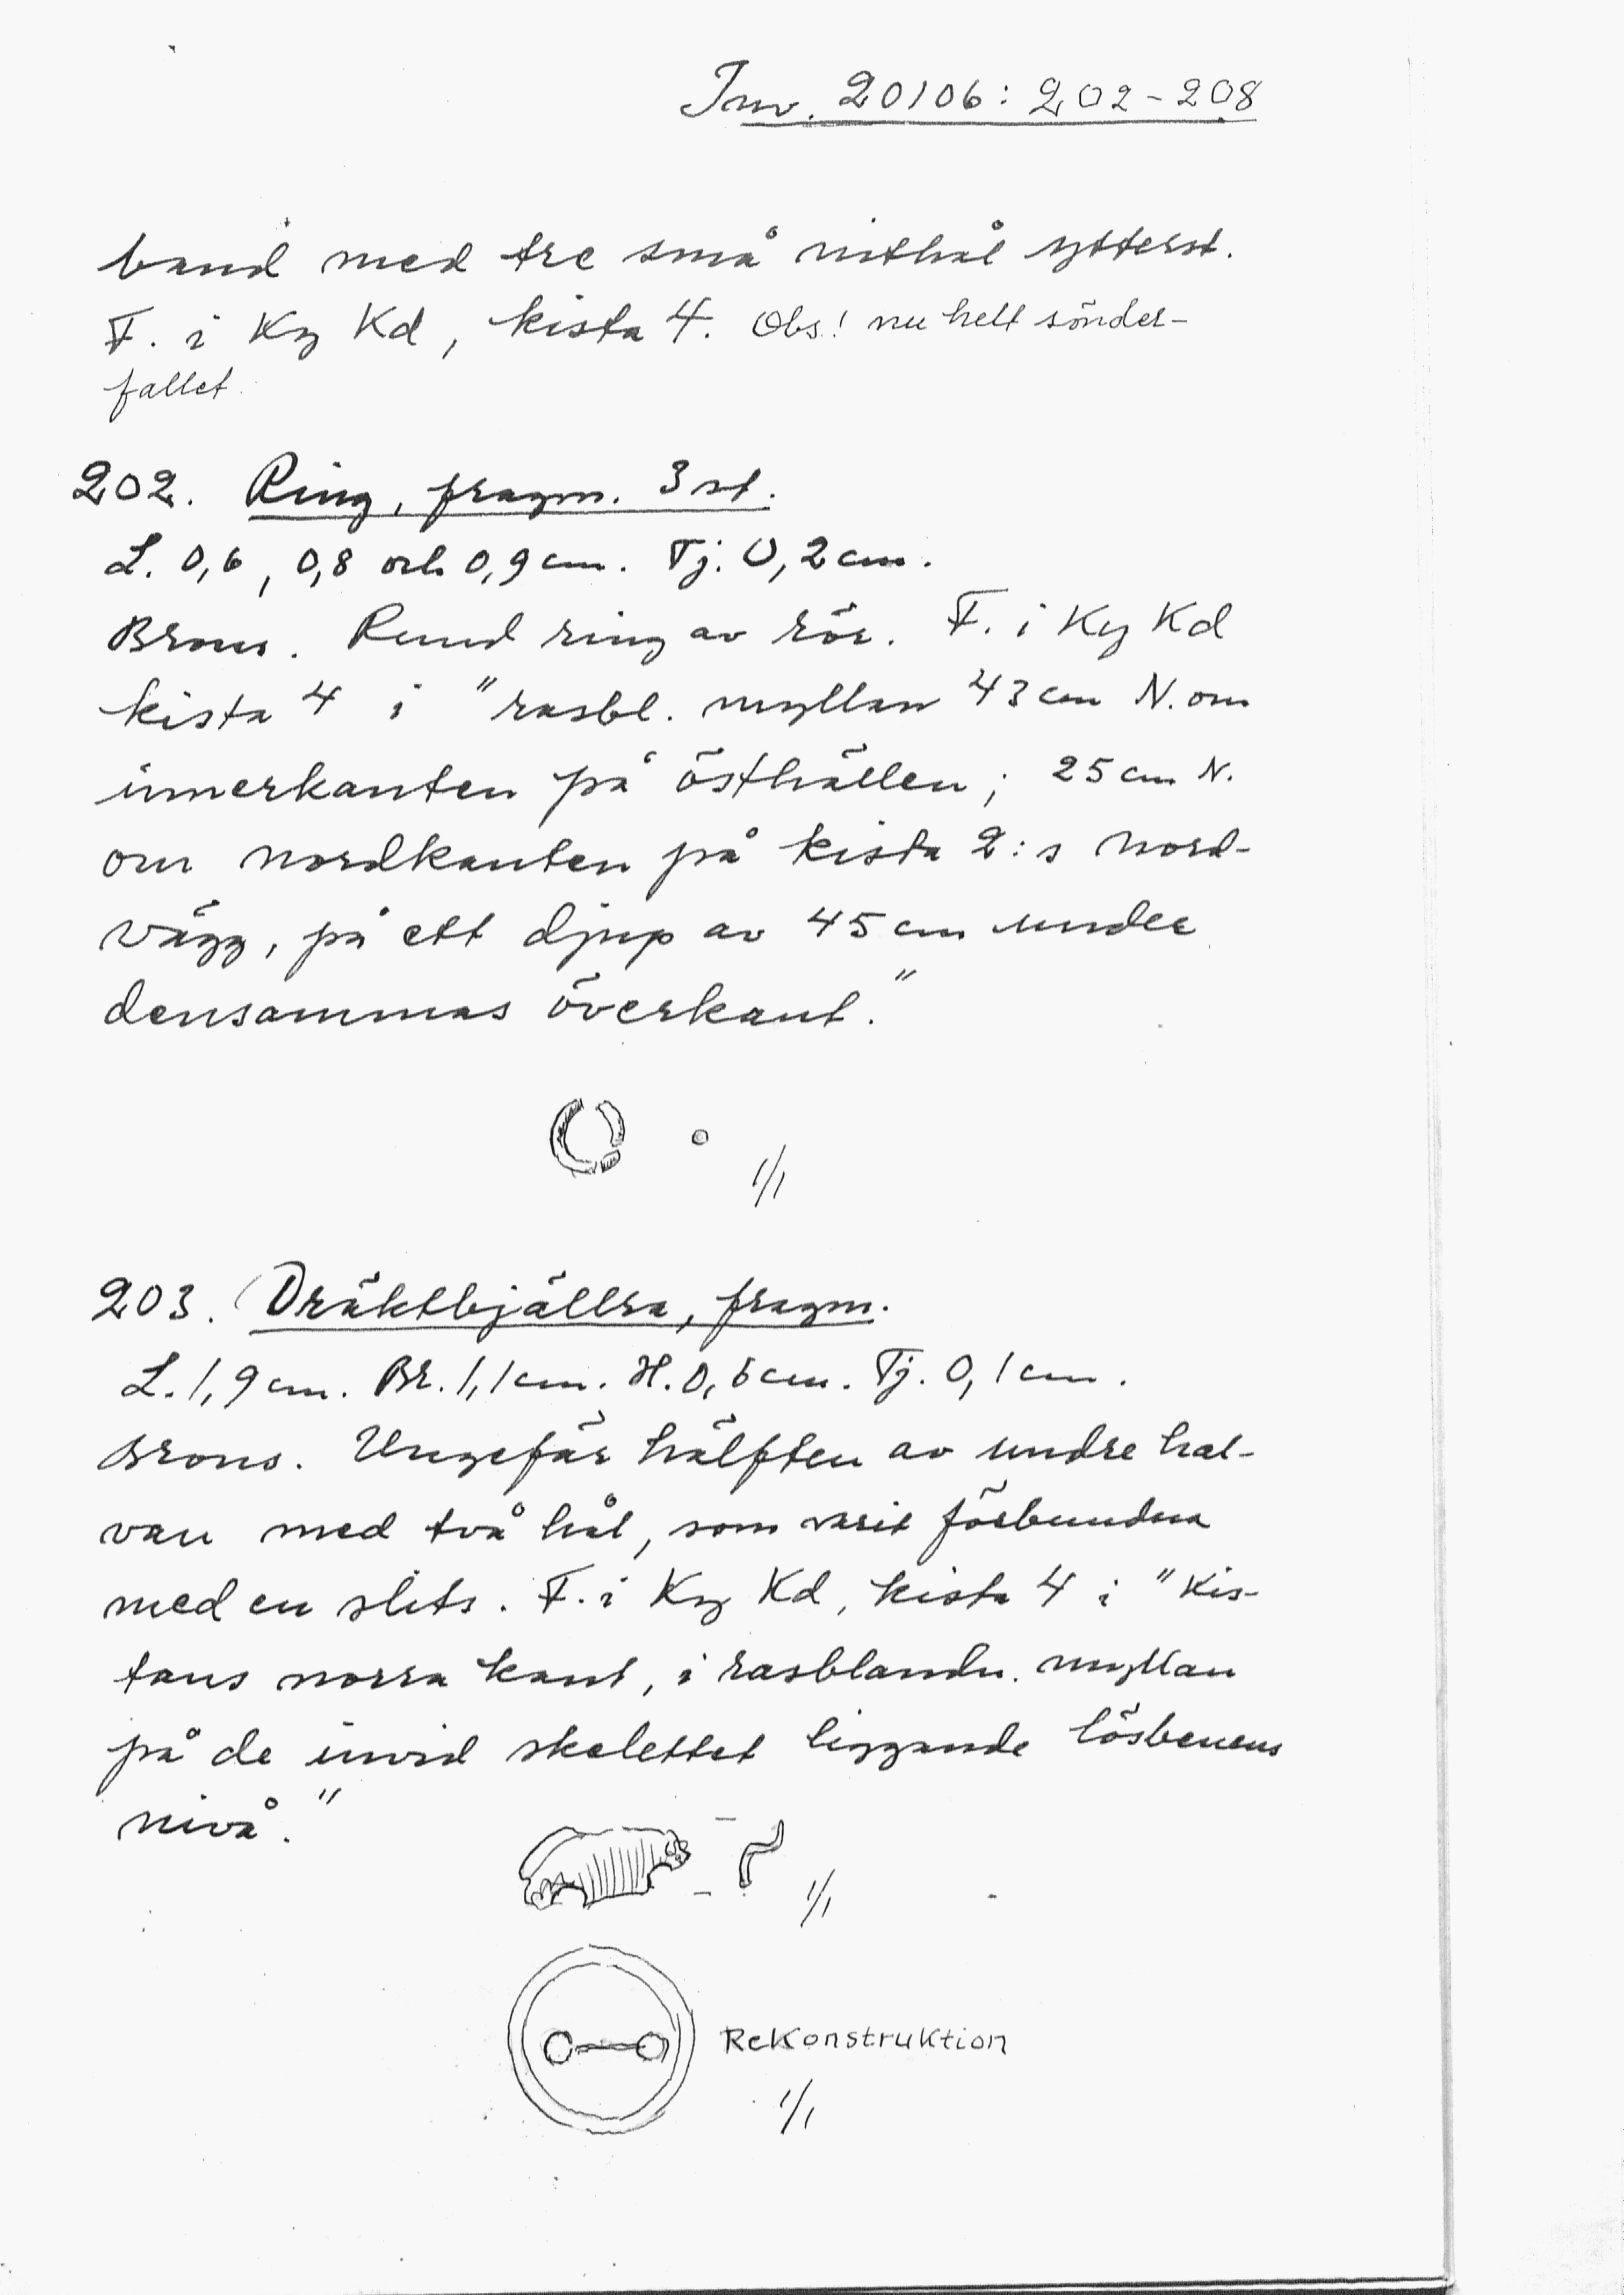 Inv. 20106: 202-208
band med tre små nithål ytterst.
F. i Ky Kd, kista 4. Obs! nu helt sönder-
fallet.
202. Ring, fragm. 3 st.
L. 0,6, 0,8 och 0,9 cm. Tj. 0,2 cm.
Brons. Rund ring av rör. F. i Ky Kd
kista 4 i "rasbl. myllan 43 cm N. om
innerkanten på östhällen; 25 cm N.
om nordkanten på kista 2:s nord-
vägg, på ett djup av 45 cm under
densammas överkant."
1/1
203. Dräktbjällra, fragm.
L. 1,9 cm. Br. 1,1 cm. H. 0,6 cm. Tj. 0,1 cm.
Brons. Ungefär hälften av undre hal-
van med två hål, som varit förbundna
med en slits. F. i Ky Kd, kista 4 i "Kis-
tans norra kant, i rasblandn. myllan
på de invid skelettet liggande lösbenens
nivå."
1/1
Rekonstruktion
1/1